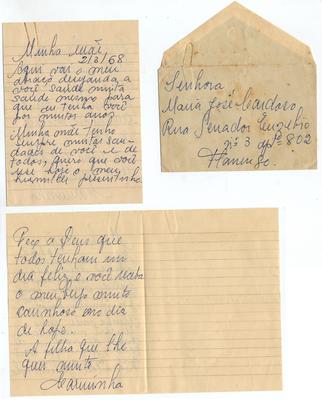 Minha Mãe,
2/3/68
Aqui vai o meu
abraço desejando a
você saúde muita
saúde mesmo para
que eu tenha você
por muitos anos
Minha mãe tenho
sempre muitas sau-
dades de você e de
todos, quero que você
use hoje o meu
humilde presentinho
Senhora
Maria José Cardoso
Rua Senador Euzébio
nº 3 aptº 802
Flamengo.
Peço a Deus que
todos tenham um
dia feliz e você receba
o meu beijo muito
carinhoso no dia
de hoje.
A filha que lhe
quer muito